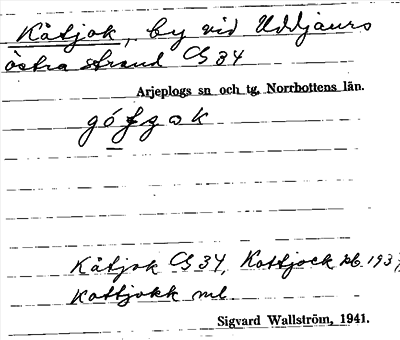 Kåtjok, by vid Uddjaurs
östra strand CS 34
Arjeplogs sn och tg, Norrbottens län.
Kåtjok CS 34, Kottjock Jb. 1937,
Kottjokk ml
Sigvard Wallström, 1941.